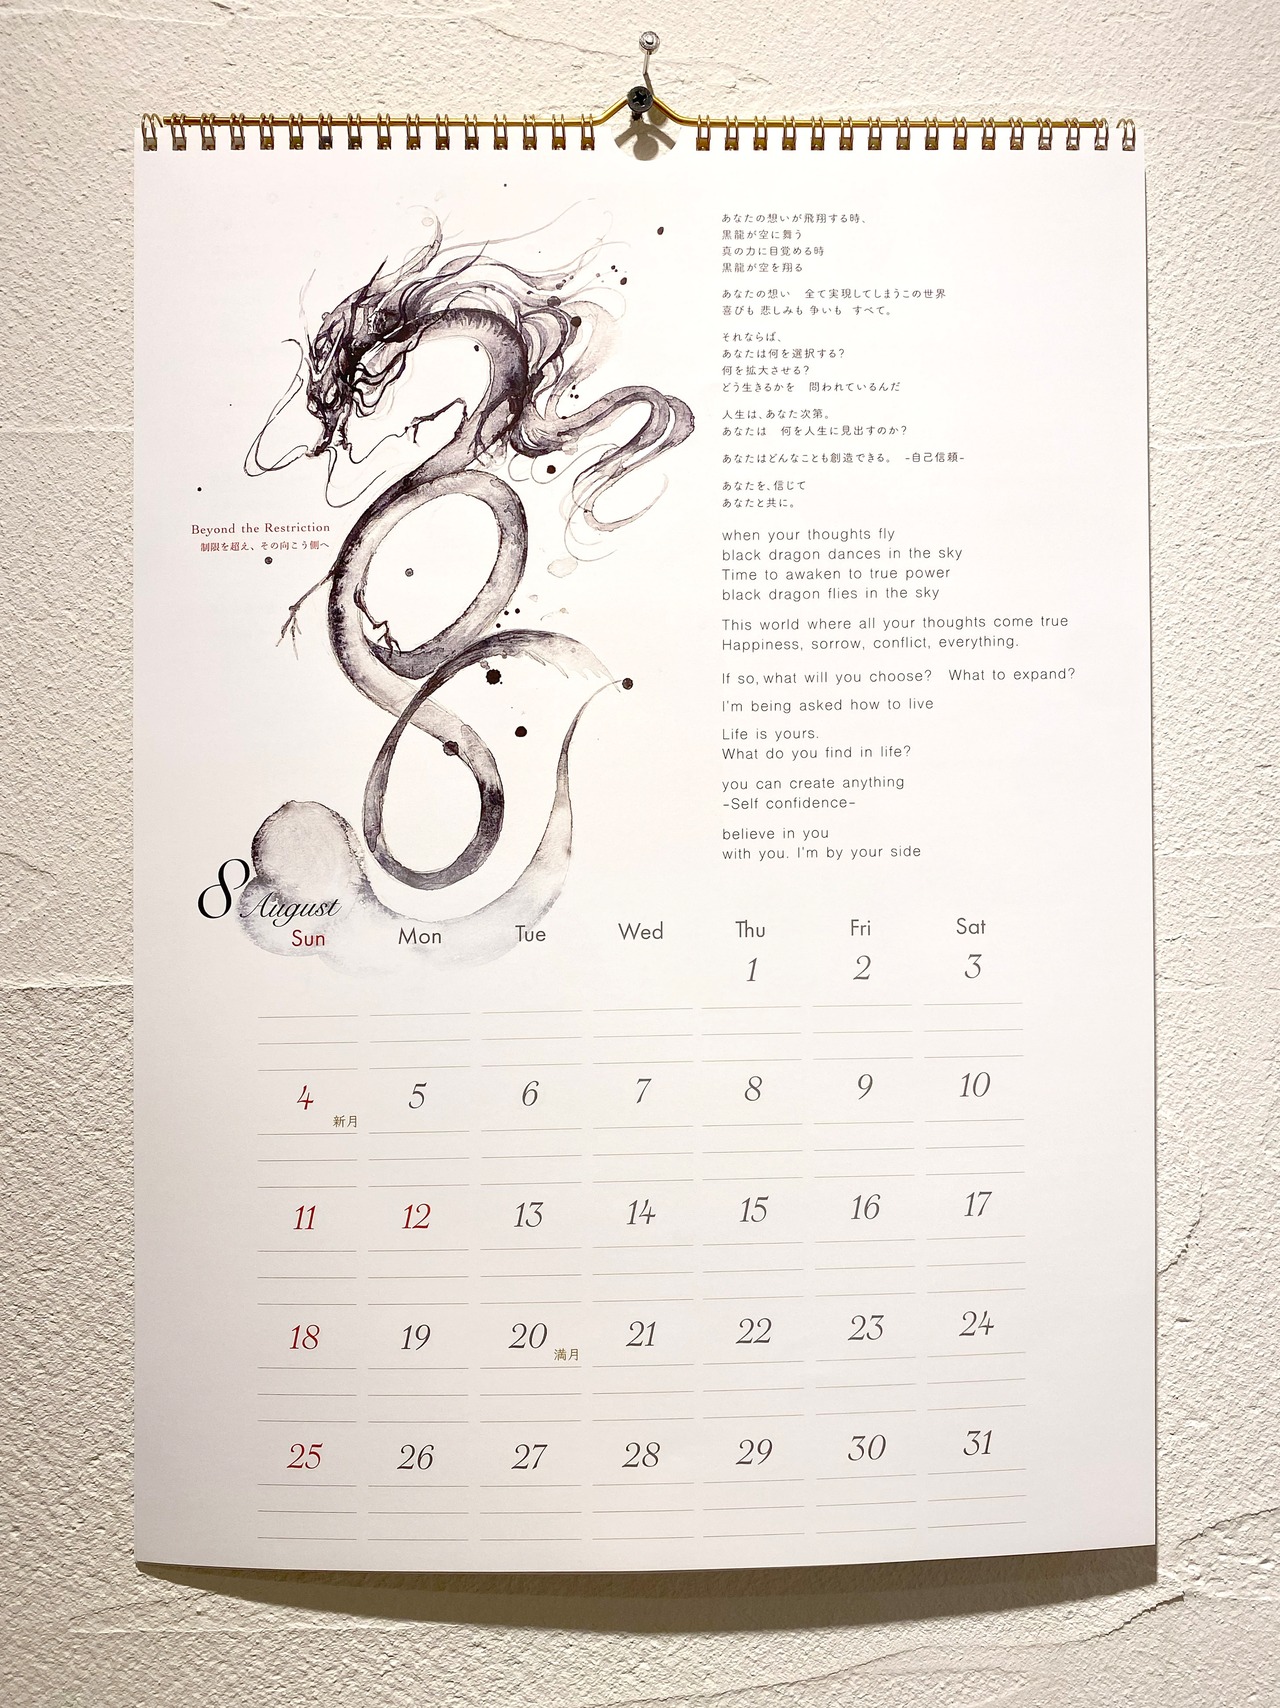 あなたの想いが飛翔する時、
黒龍が空に舞う
真の力に目覚める時
黒龍が空を翔る
あなたの想い　全て実現してしまうこの世界
喜びも 悲しみも 争いも　すべて。
それならば、
あなたは何を選択する?
何を拡大させる?
どう生きるかを　問われているんだ
人生は、あなた次第。
あなたは　何を人生に見出すのか?
あなたはどんなことも創造できる。 -自己信頼-
あなたを、信じて
あなたと共に。
when your thoughts fly
black dragon dances in the sky
Time to awaken to true power
black dragon flies in the sky
This world where all your thoughts come true
Happiness, sorrow, conflict, everything.
If so, what will you choose?　What to expand?
I'm being asked how to live
Life is yours.
What do you find in life?
you can create anything
-Self confidence-
believe in you
with you. I'm by your side
Beyond the Restriction
制限を超え、その向こう側へ
8 August
Sun Mon Tue Wed Thu Fri Sat
1 2 3
4 新月 5 6 7 8 9 10
11 12 13 14 15 16 17
18 19 20 満月 21 22 23 24
25 26 27 28 29 30 31